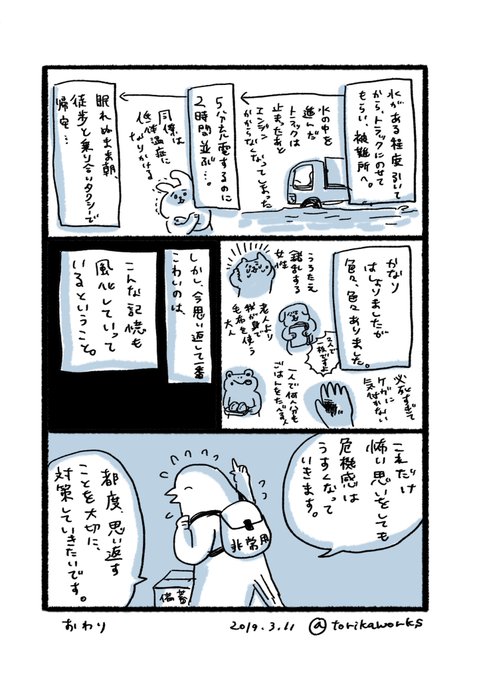 水がある程度引いて
から、トラックにのせて
もらい、避難所へ。
水の中を
進んだ
トラックは
止まったあと
エンジン
かからなくなってしまった
5分充電するのに
2時間並ぶ…。
同僚は
低体温症に
なりかける
眠れぬまま朝、
徒歩と乗り合いタクシーで
帰宅…
かなり
はしょりましたが
色々、色々ありました。
うろたえ
錯乱する
女性
老人より
我が身で
毛布を使う
大人
必死すぎて
ケガに
気付かない
一人で何分も
ごはんをたべる人
しかし、今思い返して一番
こわいのは、
こんな記憶も
風化していって
いるということ。
これだけ
怖い思いをしても
危機感は
うすくなって
いきます。
都度、思い返す
ことを大切に、
対策していきたいです。
非常用
備蓄
おわり
2019.3.11 @torikaworks